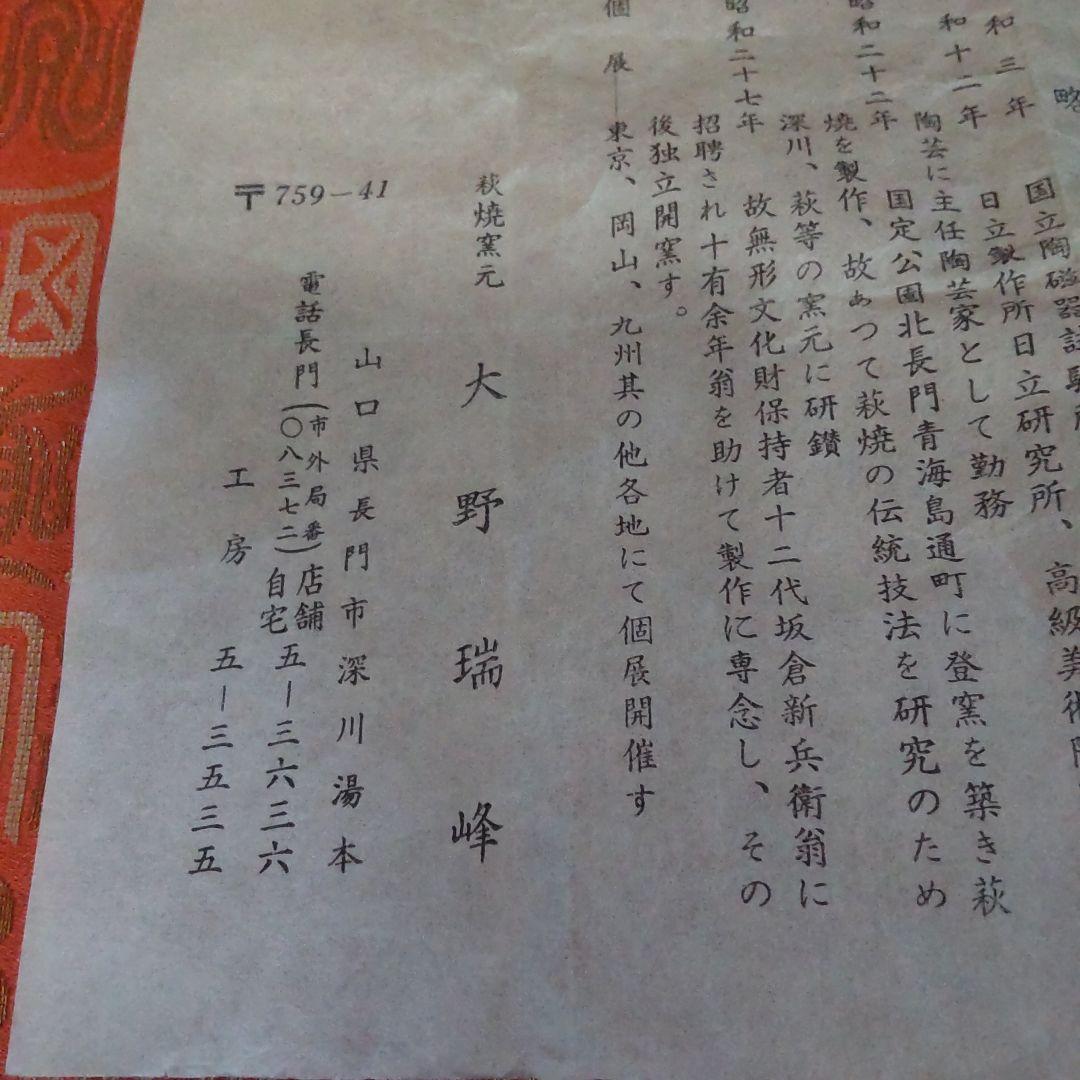 略
和三年 国立陶磁器試験所
和十二年 日立製作所日立研究所、高級美術
陶芸に主任陶芸家として勤務
昭和二十二年 国定公園北長門青海島通町に登窯を築き萩
焼を製作、故あつて萩焼の伝統技法を研究のため
深川、萩等の窯元に研鑽
昭和二十七年 故無形文化財保持者十二代坂倉新兵衛翁に
招聘され十有余年翁を助けて製作に専念し、その
後独立開窯す。
個展―東京、岡山、九州其の他各地にて個展開催す
萩焼窯元 大野瑞峰
〒759-41
山口県長門市深川湯本
電話長門(市外局番)店舗 五―三六三六
(〇八三七二)自宅
工房 五―三五三五